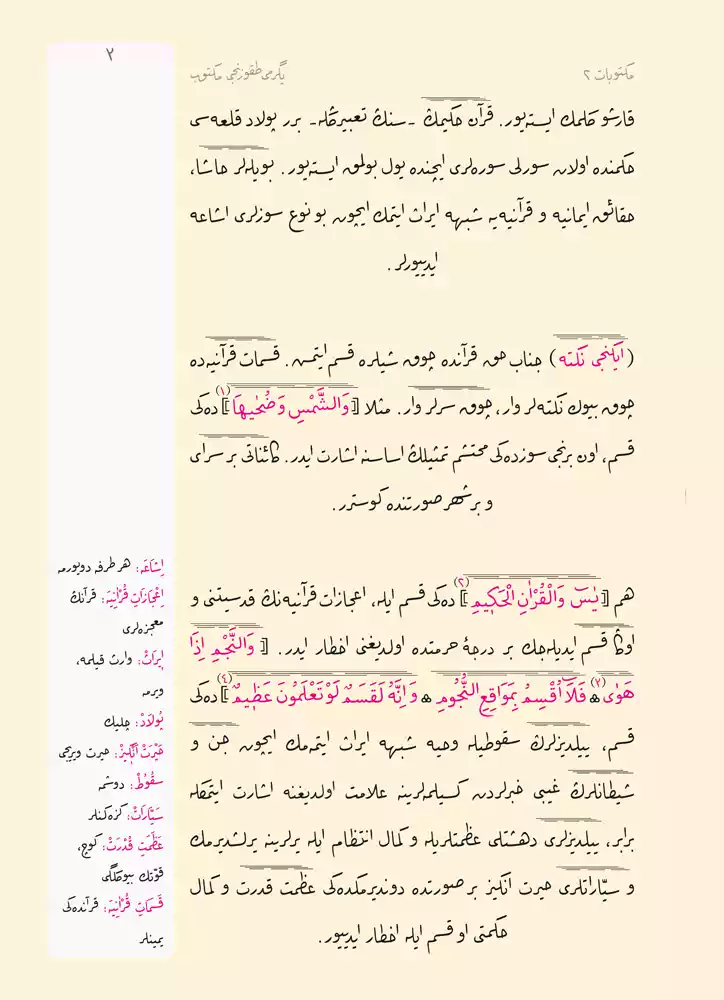 مكتوبات ٢
يگرمى طقوزنجى مكتوب
٢
قارشو گلمك ايسته‌يور. قرآن حكيمڭ -سنڭ تعبيرڭله- برر پولاد قلعه‌سى
حكمنده اولان سورلى سوره‌لرى ايچنده يول بولمق ايسته‌يور. بويله‌لر حاشا،
حقائق ايمانيه و قرآنيه‌يه شبهه ايراث ايتمك ايچون بو نوع سوزلرى اشاعه
ايدييورلر.
(ايكنجى نكته) جناب حق قرآنده چوق شيلره قسم ايتمش. قسمات قرآنيه‌ده
چوق بيوك نكته‌لر وار، چوق سرلر وار. مثلا [وَالشَّمْسِ وَضُحٰيهَا](١) ده‌كى
قسم، اون برنجى سوزده‌كى محتشم تمثيلڭ اساسنه اشارت ايدر. كائناتى بر سراى
و بر شهر صورتنده كوسترر.
هم [يٰسٓ وَالْقُرْاٰنِ الْحَكٖيمِ](٢) ده‌كى قسم ايله، اعجازات قرآنيه‌نڭ قدسيتنى و
اوڭا قسم ايديله‌جك بر درجهٔ حرمتده اولديغنى اخطار ايدر. [وَالنَّجْمِ اِذَا
هَوٰى(٣) ❊ فَلَٓا اُقْسِمُ بِمَوَاقِعِ النُّجُومِ ❊ وَاِنَّهُ لَقَسَمٌ لَوْ تَعْلَمُونَ عَظٖيمٌ](٤) ده‌كى
قسم، ييلديزلرڭ سقوطيله وحيه شبهه ايراث ايتمه‌مك ايچون جن و
شيطانلرڭ غيبى خبرلردن كسيلمه‌لرينه علامت اولديغنه اشارت ايتمكله
برابر، ييلديزلرى دهشتلى عظمتلريله و كمال انتظام ايله يرلرينه يرلشديرمك
و سيّاراتلرى حيرت انگيز بر صورتده دونديرمكده‌كى عظمت قدرت و كمال
حكمتى او قسم ايله اخطار ايدييور.
اِشَاعَه: هر طرفه دويورمه
اِعْجَازَاتِ قُرْاٰنِيَه: قرآنڭ
معجزه‌لرى
اٖيرَاثْ: وارث قيلمه،
ويرمه
پُولَادْ: چليك
حَيْرَتْ اَنْگٖيزْ: حيرت ويريجى
سُقُوطْ: دوشمه
سَيَّارَاتْ: گزه‌گنلر
عَظَمَتِ قُدْرَتْ: كوچ،
قوّتڭ بيوكلگى
قَسَمَاتِ قُرْاٰنِيَه: قرآنده‌كى
يمينلر